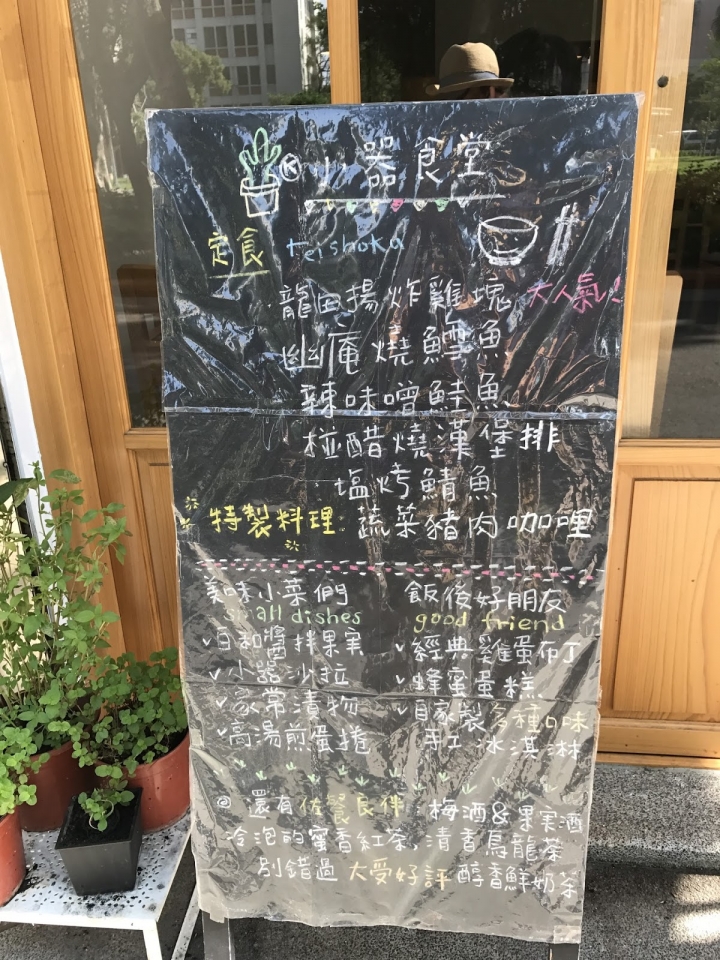 小器食堂
定食 teishoku
龍田揚炸雞塊 大人氣!
幽庵燒鱈魚
辣味噌鮭魚
椪醋燒漢堡排
塩烤鯖魚
特製料理:蔬菜豬肉咖哩
美味小菜們
small dishes
日和醬拌果実
小器沙拉
家常漬物
高湯煎蛋捲
飯後好朋友
good friend
經典雞蛋布丁
蜂蜜蛋糕
自家製各種口味
手工冰淇淋
還有佐餐良伴:梅酒&果実酒
冷泡的蜜香紅茶,清香烏龍茶
別錯過 大受好評 醇香鮮奶茶